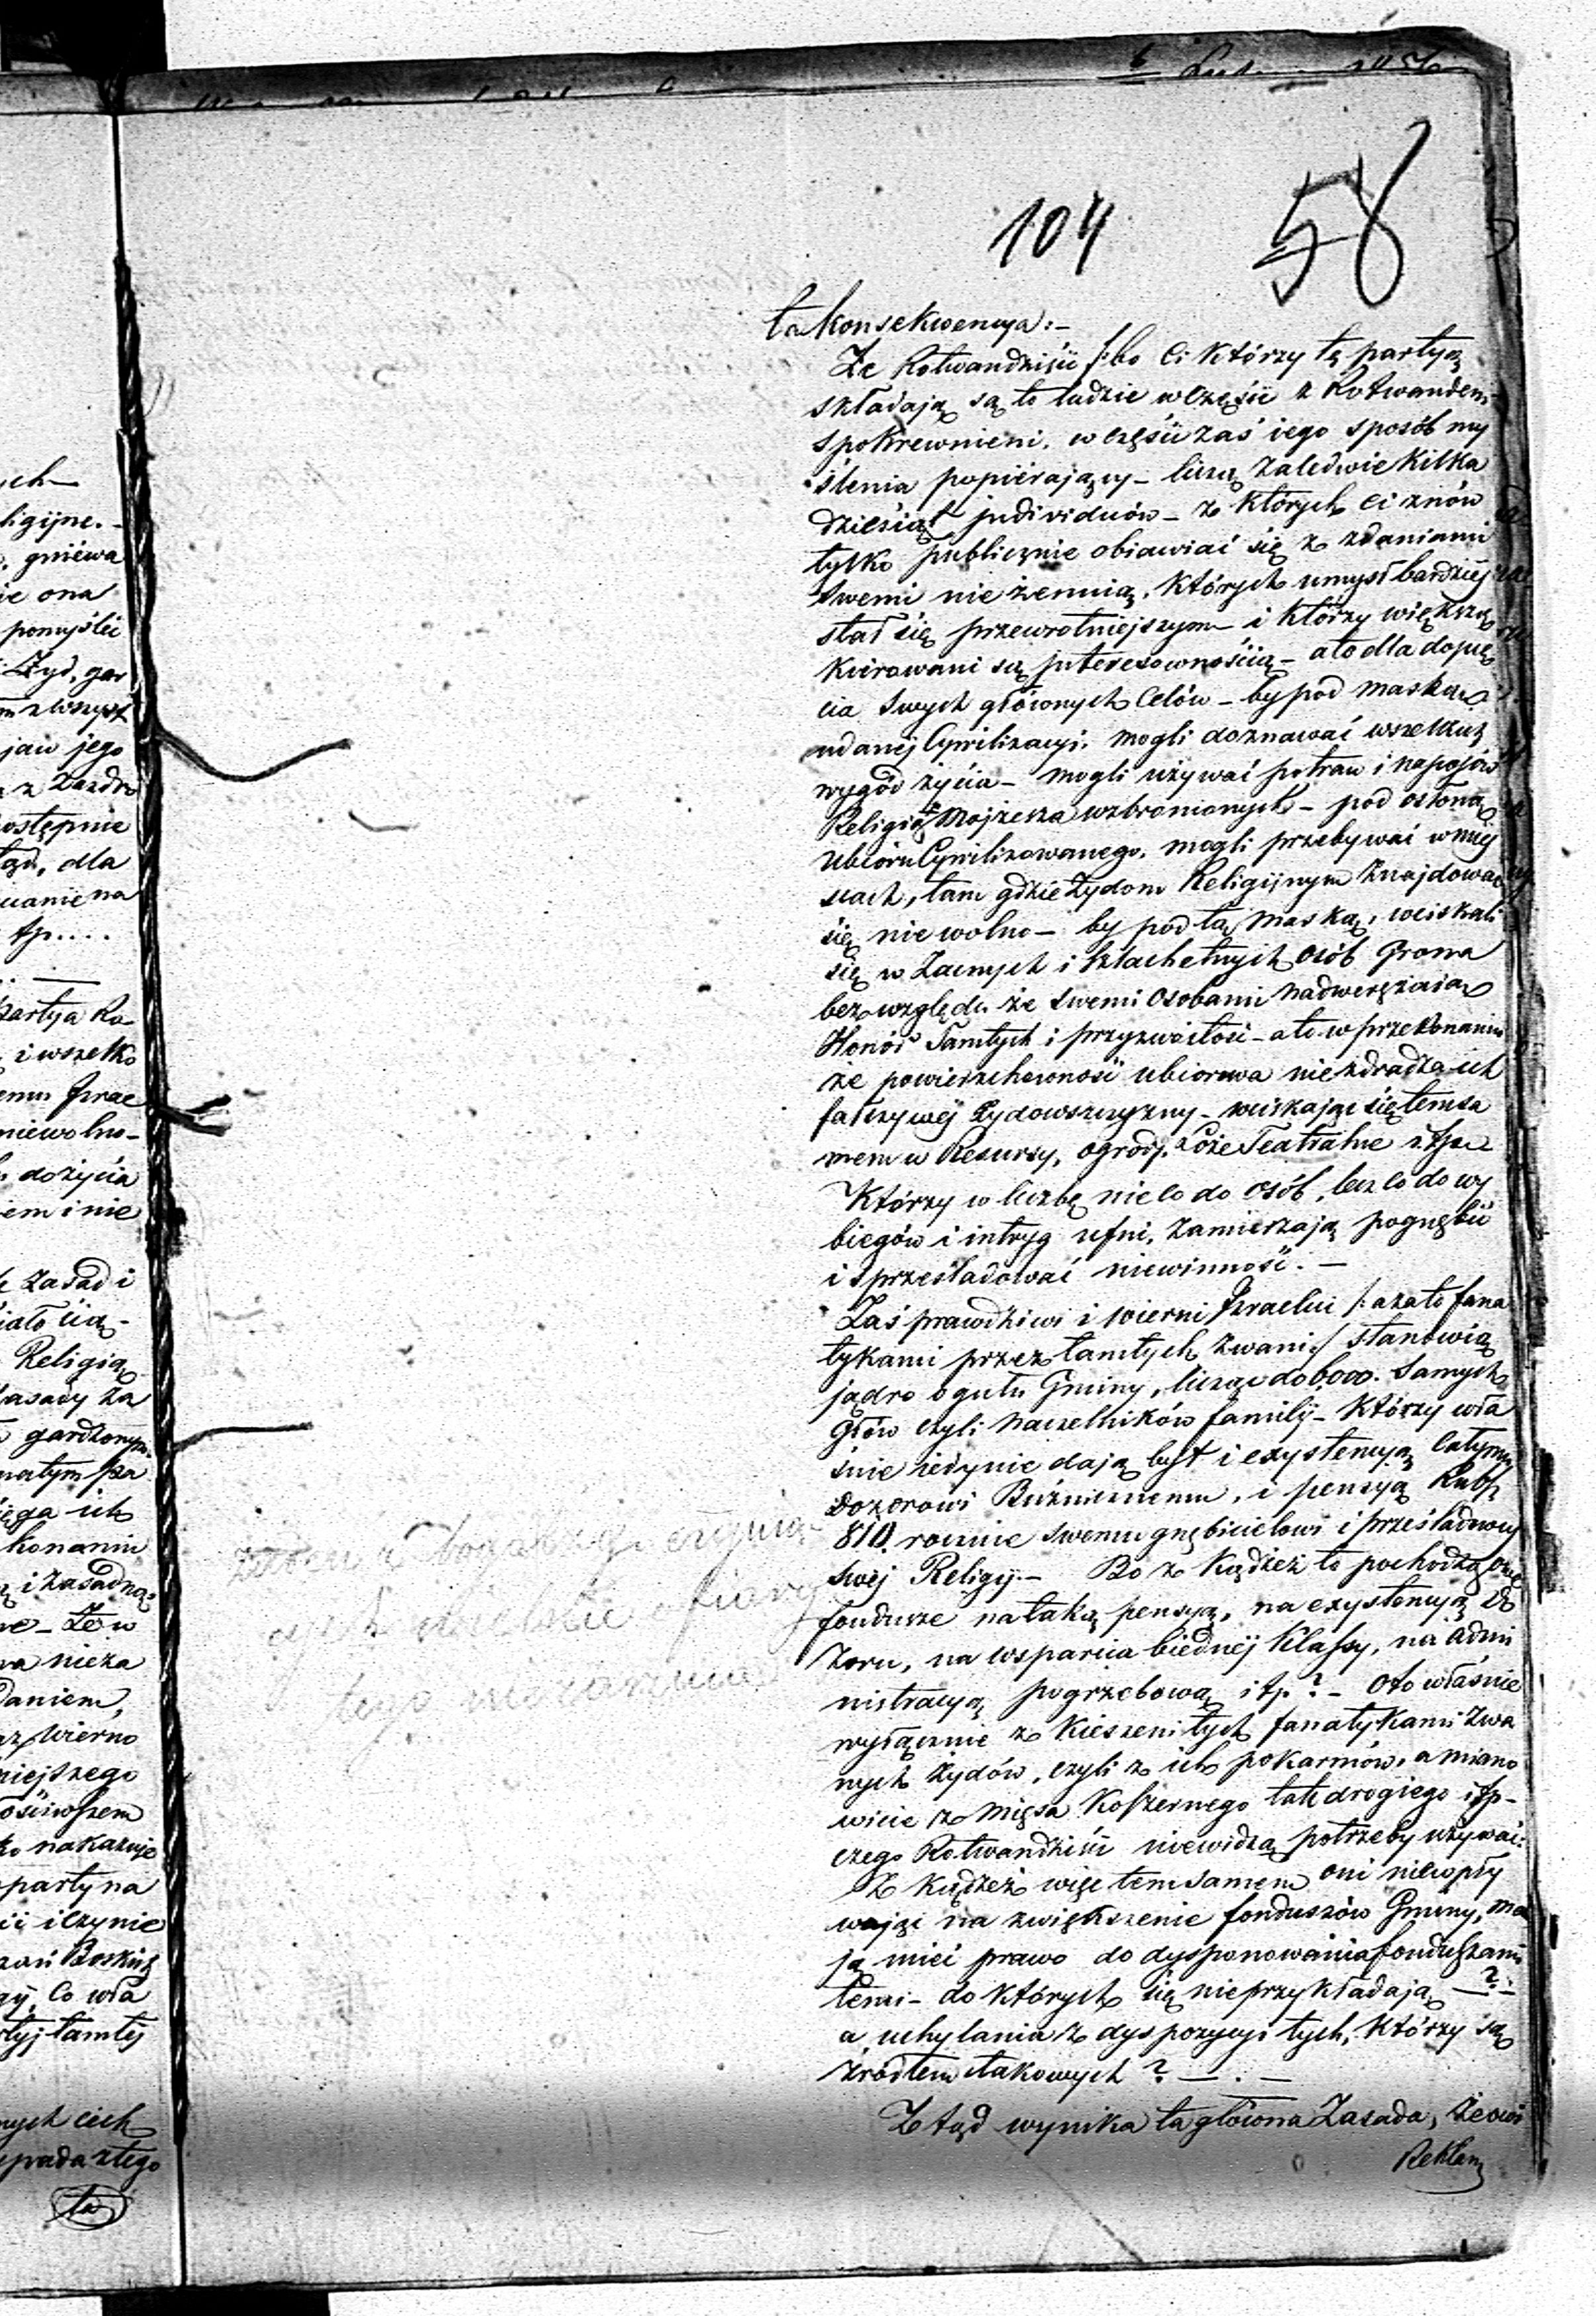 104 58
ta konsekwencya:-
Że Rotwandziści /:bo Ci którzy tę partyą
składają są to ludzie w części z Rotwandem
spokrewnieni, w części zaś iego sposób my
ślenia popierający - liczą zaledwie kilka
dziesiąt jndividuów - z których ci znów
tylko publicznie obiawiać się z zdaniami
swemi nie żenuią, których umysł bardziej
stał się przewrotniejszym i którzy większą
kierowani są jnteresownością - a to dla dopię
cia swych głównych Celów - by pod maską
udanej Cywilizacyi, mogli doznawać wszelkich
wygód życia - mogli używać potraw i napojów
Religią Mojżesza wzbronionych - pod osłoną
ubioru Cywilizowanego, mogli przebywać w miej
scach, tam gdzie Żydom Religijnym znajdować
się nie wolno - by pod tą maską, wciskali
się w Zacnych i szlachetnych osób Grona
bez względu że swemi Osobami nadwerężaią
Honor Tamtych i przyzwoitość - a to w przekonaniu
że powierzchowność ubiorowa nie zdradza ich
fałszywéj Żydowszczyzny - wciskając się temsa
mem w Resursy, ogrody, Loże Teatralne i tp.
Którzy w liczbę nie co do osób, lecz co do wy
biegów i intryg ufni, zamierzają pognębić
i sprześladować niewinność. -
Zaś prawdziwi i wierni Jzraelici /: a za to fana
tykami przez tamtych zwani:/ stanowią
jądro ogułu Gminy, licząc do 6,000. Samych
Głów czyli naczelników familij - którzy wła
śnie iedynie dają byt i exystencyą całemu
Dozorowi Bużnicznemu, i pensyą Rubsr
810. rocznie swemu gnębicielowi i prześladowcy
swéj Religij. - Bo z kądżeż to pochodzą owe
fundusze na taką pensyą, na exystencyą Do
zoru, na wsparcia biednéj Klassy, na admi
nistracyą pogrzebową itp? - Oto właśnie
wyłącznie z kieszeni tych fanatykami zwa
nych żydów, czyli z ich pokarmów, a miano
wicie z mięsa Koszernego tak drogiego itp -
czego Rotwandziści niewidzą potrzeby używać.
Z kądżeż więc temsamem oni niewpły
wając na zwiększenie funduszów Gminy, ma
ją mieć prawo do dysponowania funduszami
temi - do których się nieprzykładają - ? -
a uchylania z dyspozycyi tych, którzy są
źródłem takowych ? - . -
Z tąd wynika ta główna Zasada, że owi
Reklam

ligijne. -
gniéwa
ie ona
pomyśleć
Żyd, gar
jaw jego
ostępnie
dla
na
tp....
Partya Ro-
i wszelko
niewolno-
do życia
em i nie
Zasad i
Religią
zasady za
gardzonym
konaniu
i zasadną
nieza
daniem,
Wierno
niejszego
nakazuje
party na
i czynie
Boskich
Co wła
tamtéj
nych cech
pada z tego
ta